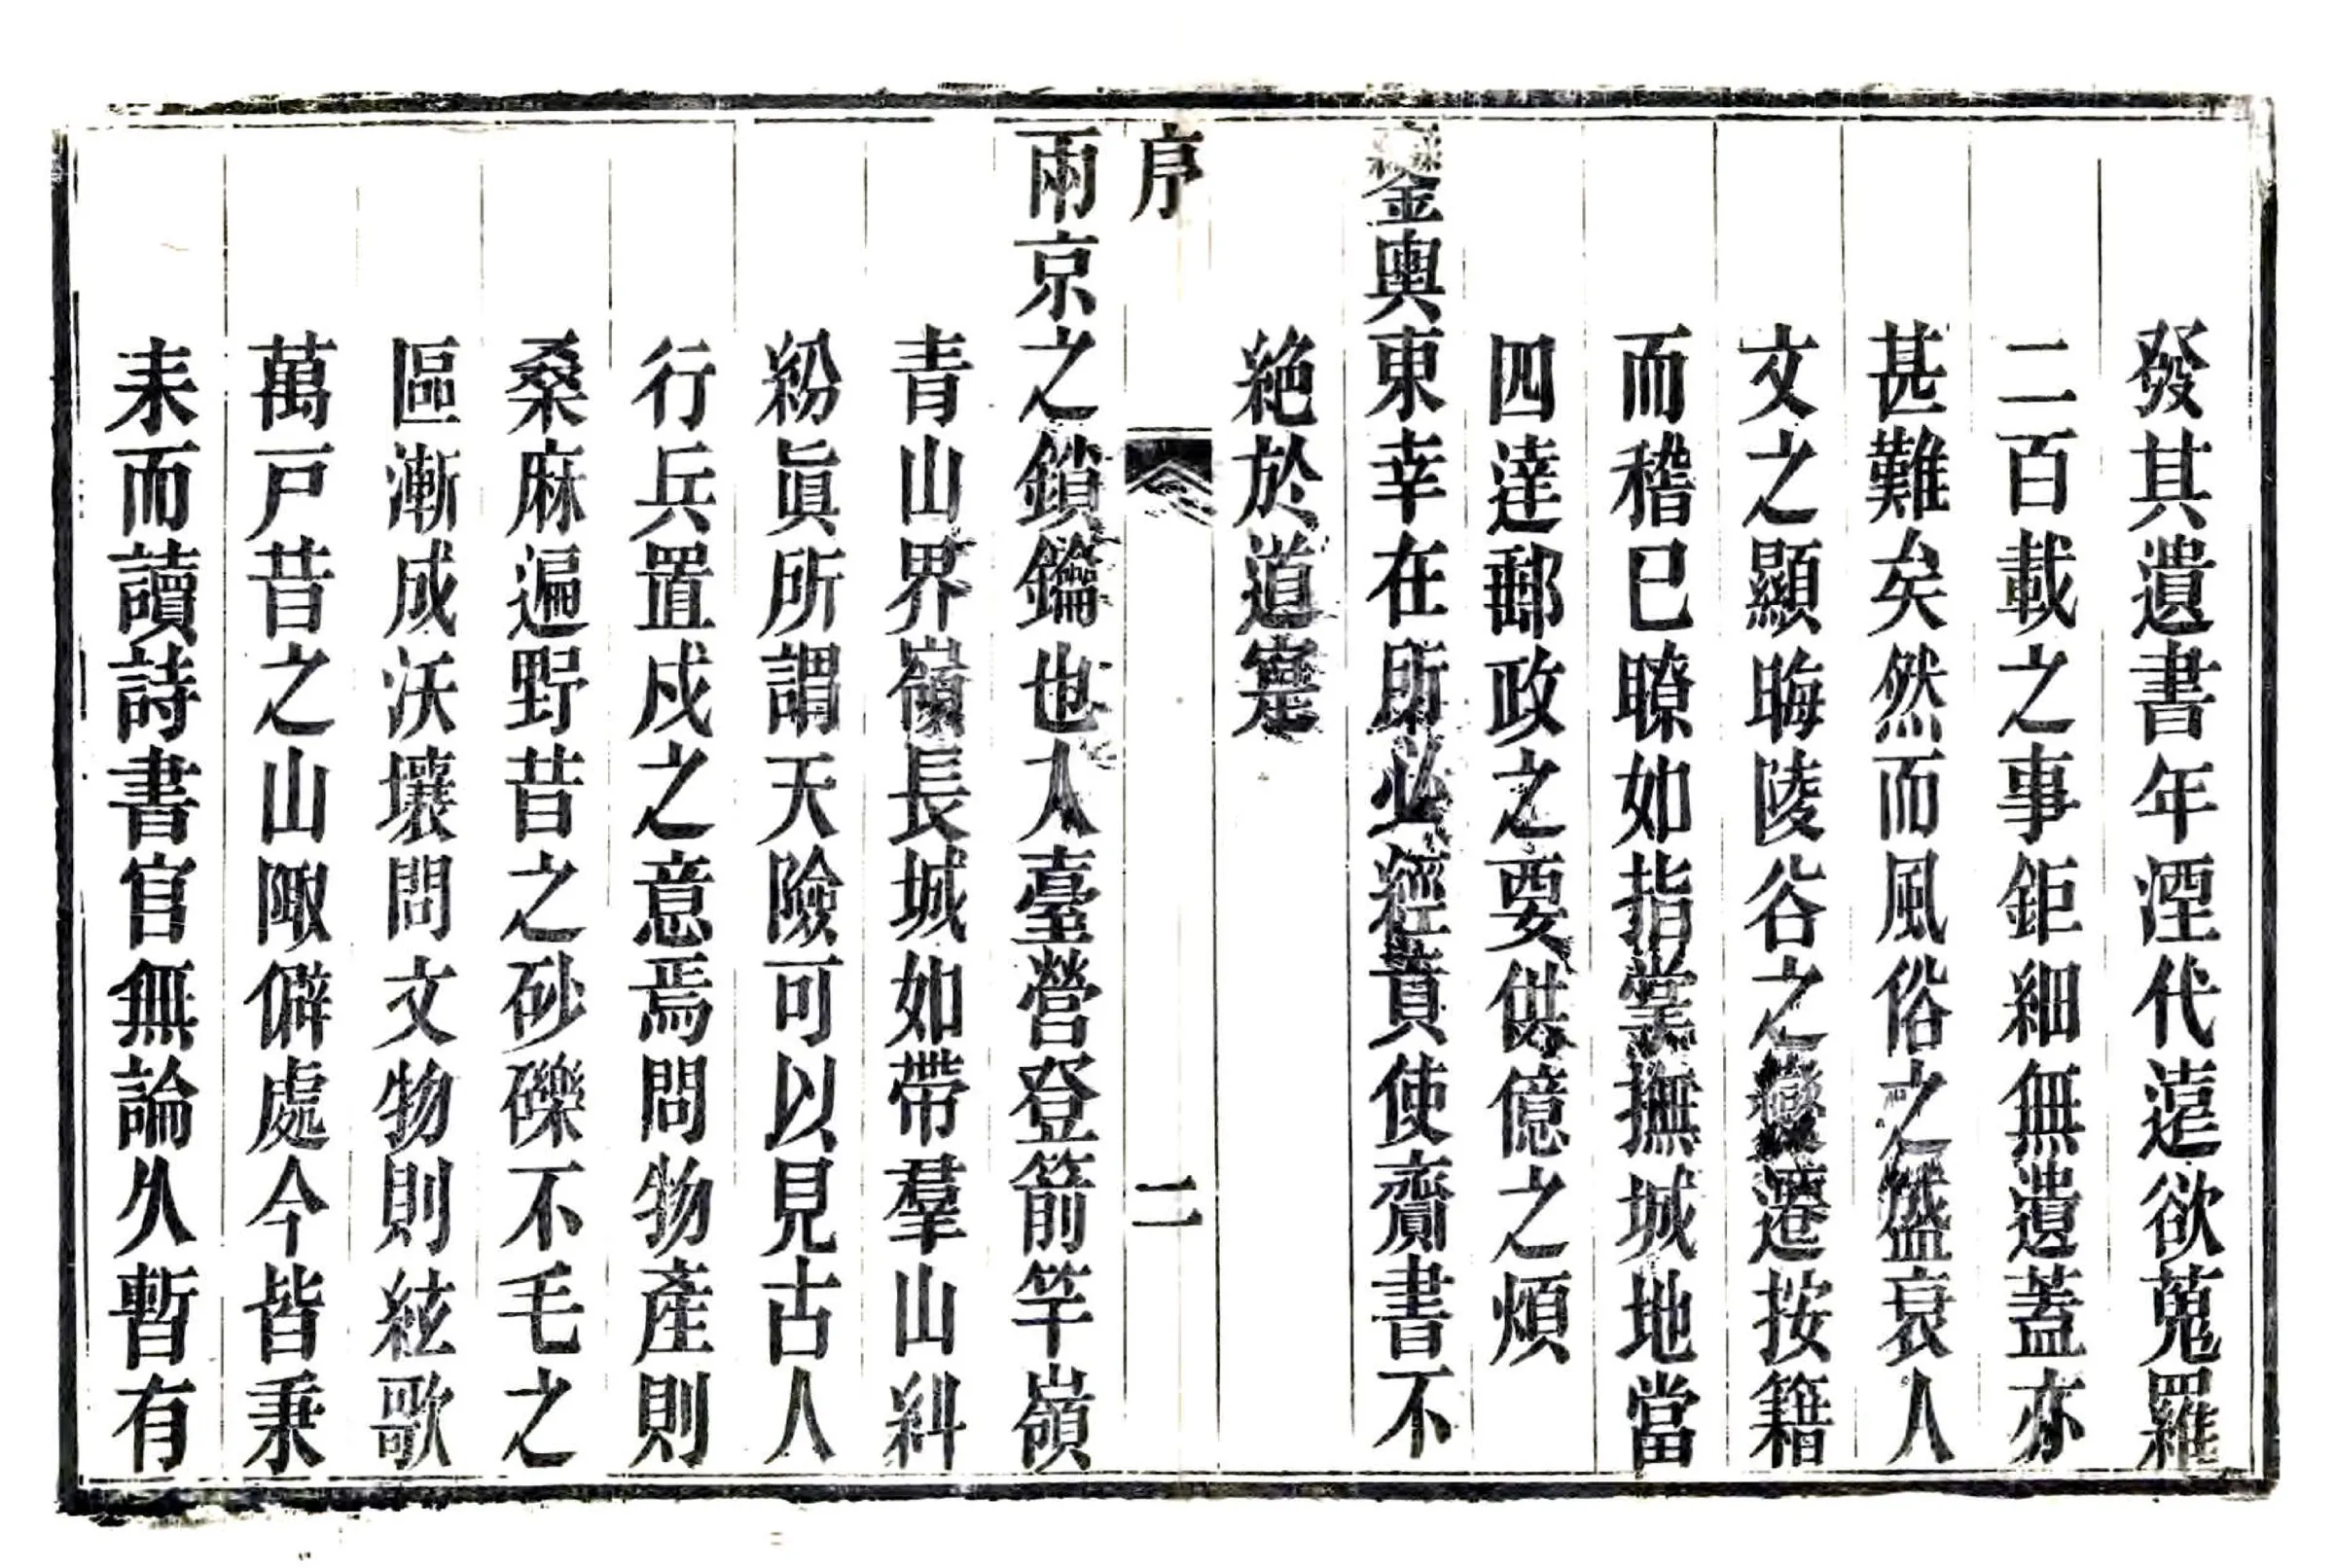 發其遺書年湮代遠欲蒐羅
二百載之事鉅細無遺蓋亦
甚難矣然而風俗之盛衰人
文之顯晦陵谷之變遷按籍
而稽已瞭如指掌撫城地當
四達郵政之要供億之煩
鑾輿東幸在所必經賁使齎書不
絶於道寔
序
二
兩京之鎖鑰也入臺營登箭竿嶺
青山界嶺長城如帶羣山糾
紛眞所謂天險可以見古人
行兵置戍之意焉問物產則
桑麻遍野昔之砂礫不毛之
區漸成沃壤問文物則絃歌
萬戸昔之山陬僻處今皆秉
耒而讀詩書官無論久暫有